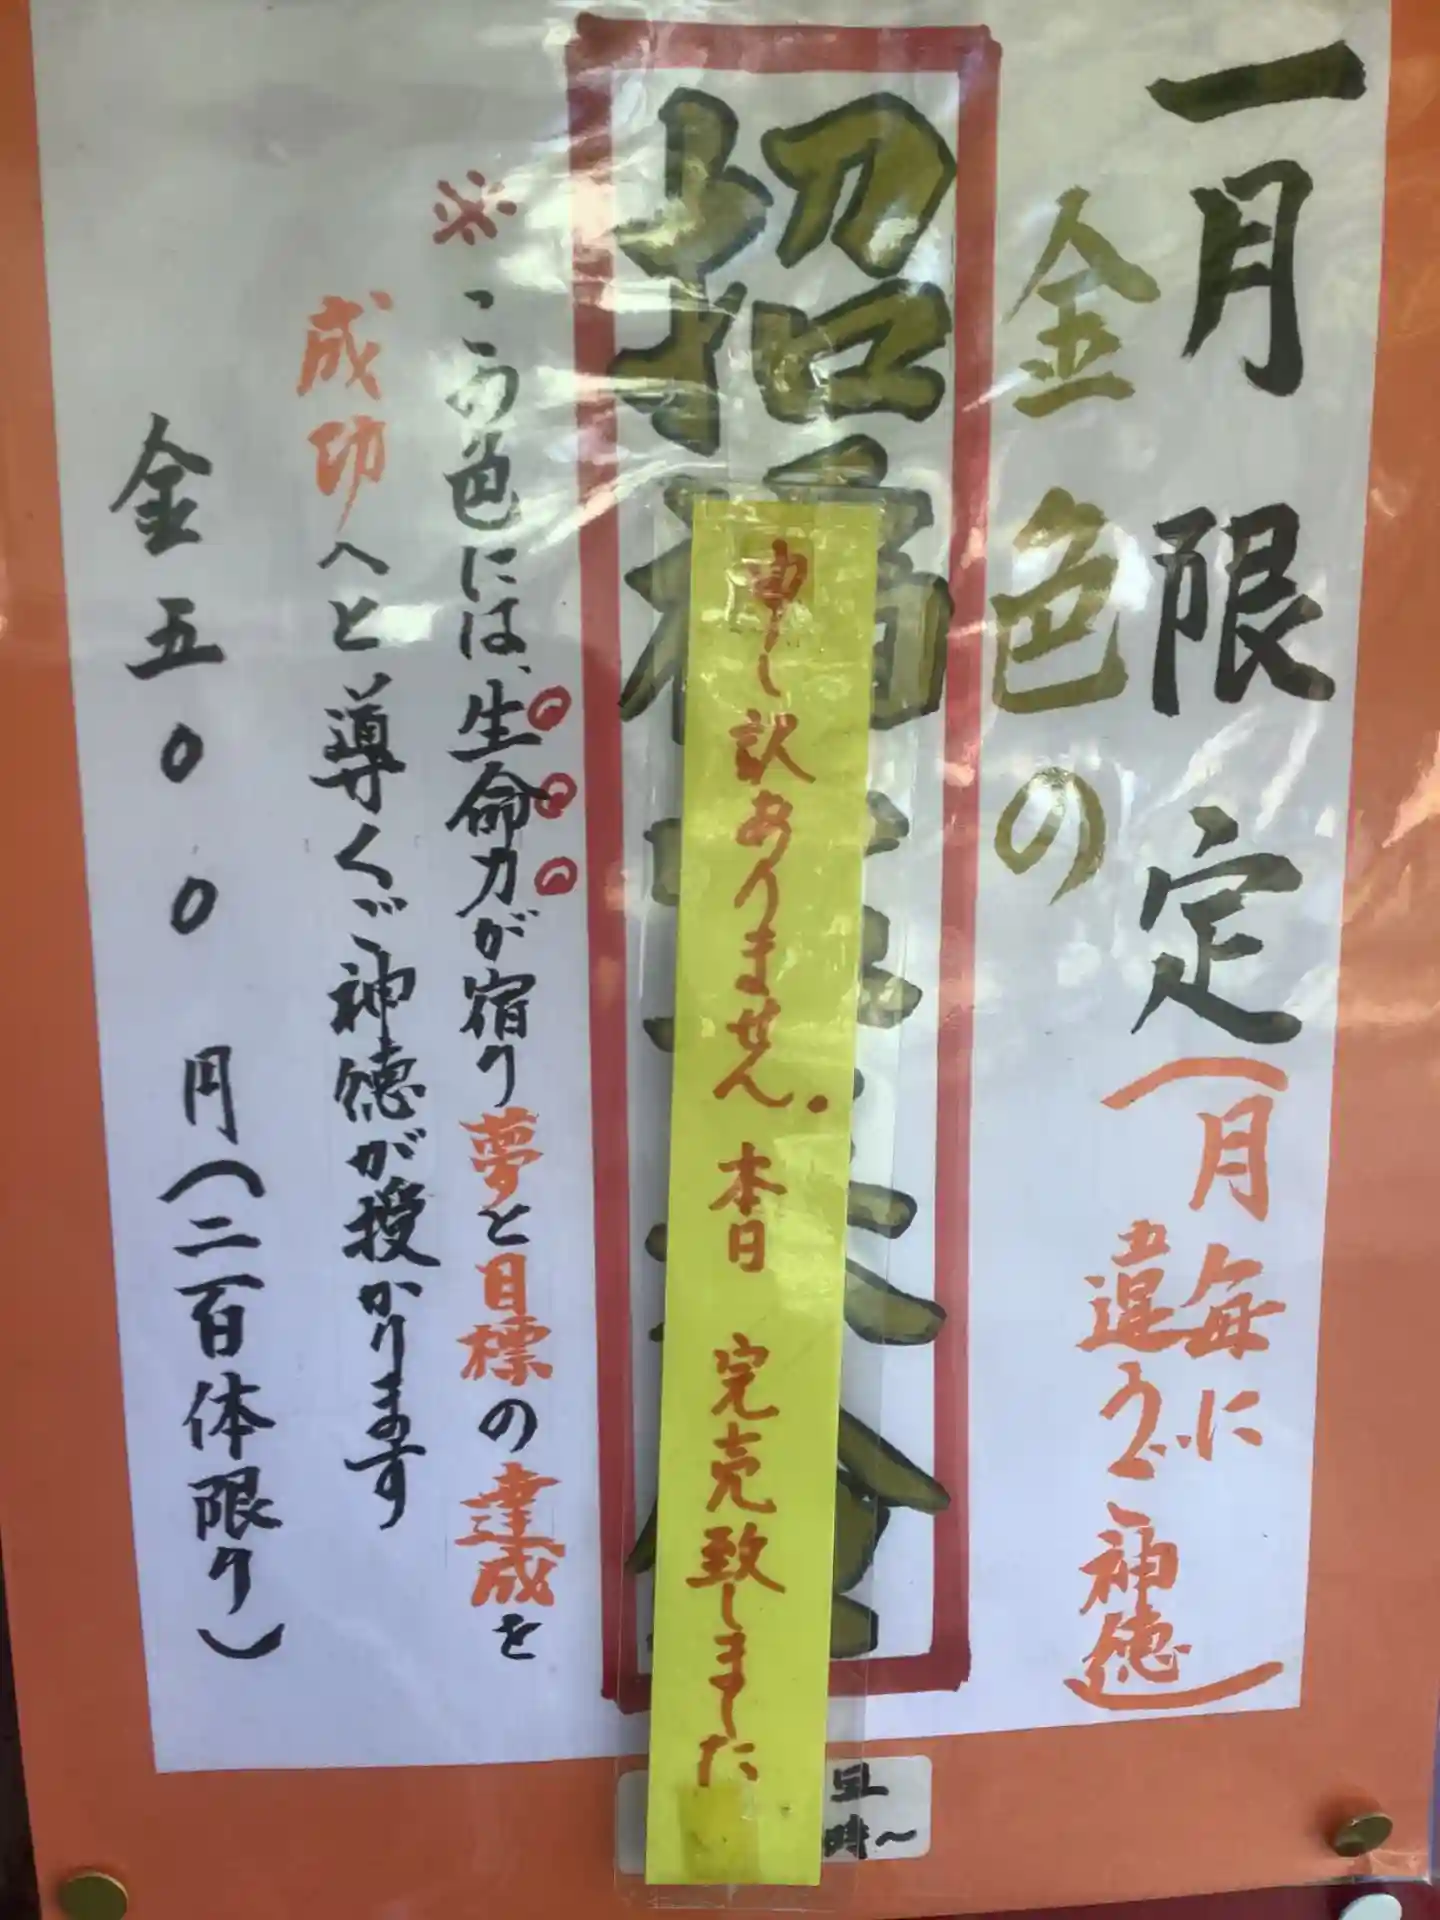 一月限定(月毎に
違うご神徳)
金色の
招福
申し訳ありません。本日 完売致しました
※この色には、生命力が宿り夢と目標の達成を
成功へと導くご神徳が授かります
金五００円(二百体限り)
時～